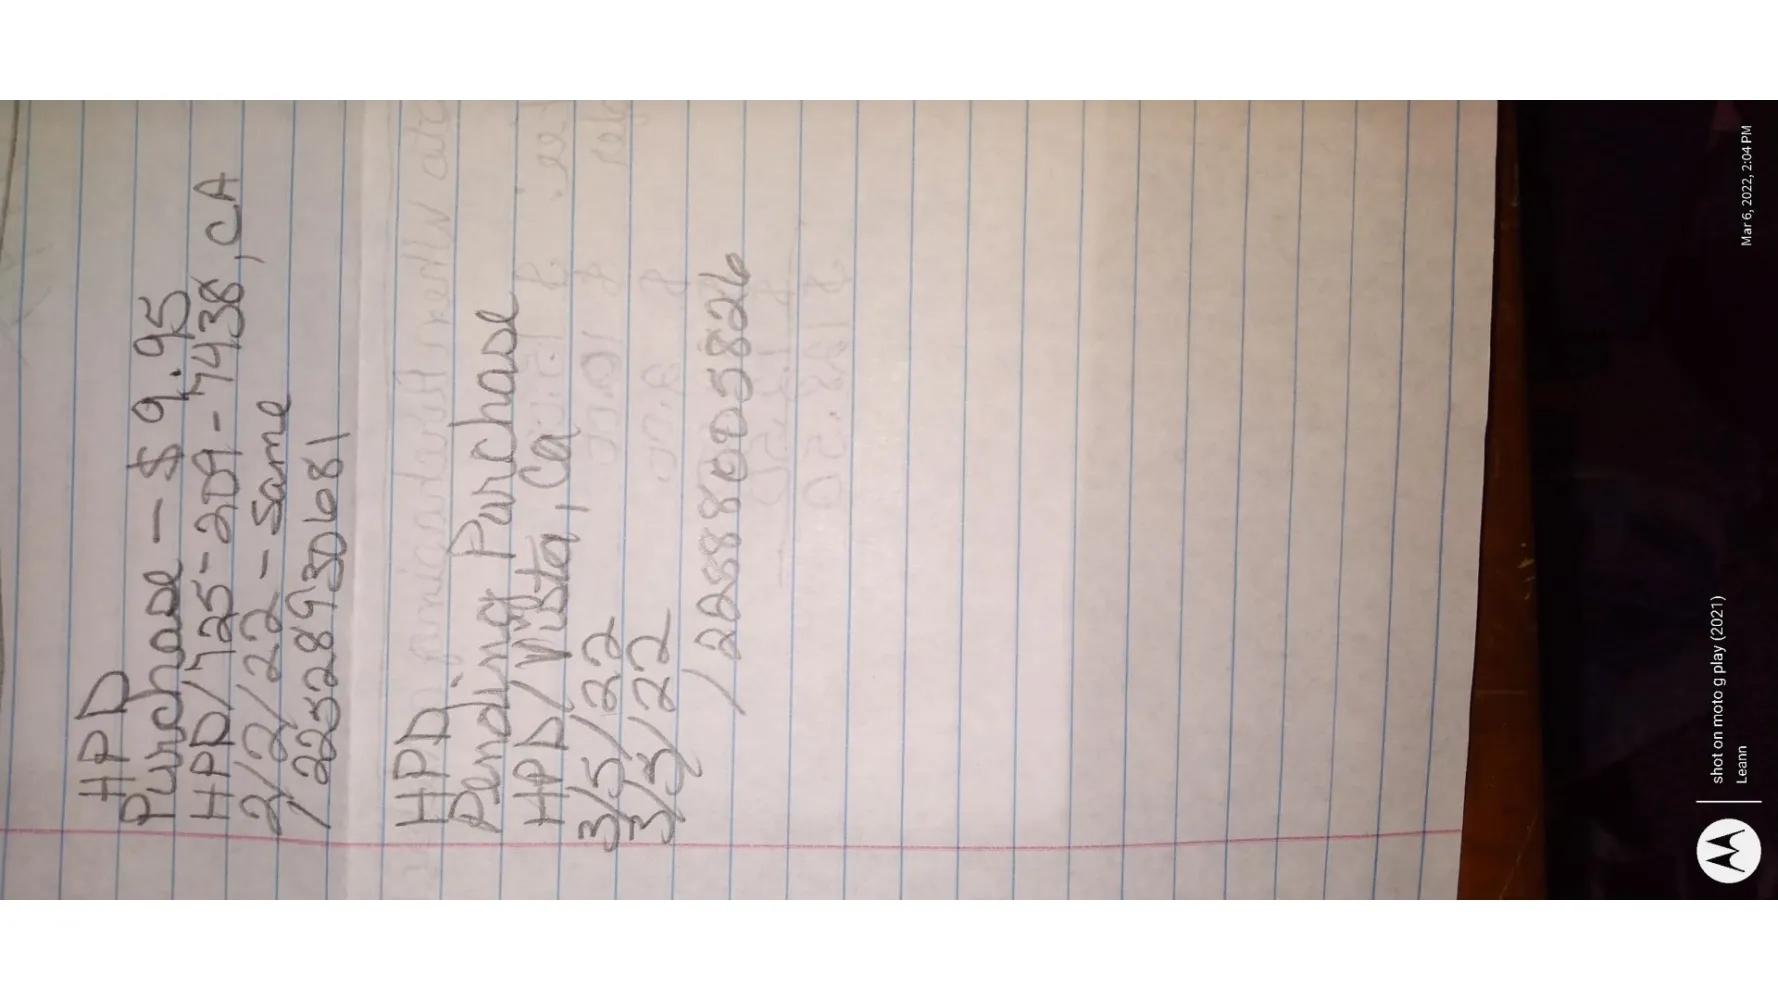 HPD
Purchase - $9.95
HPD/725-209-7438, CA
2/2/22 - Same
/225289730681
HPD
Pending Purchase
HPD/Vista, Ca
3/5/22
3/5/22
/22588005826
shot on moto g play (2021)
Leann
Mar 6, 2022, 2:04 PM